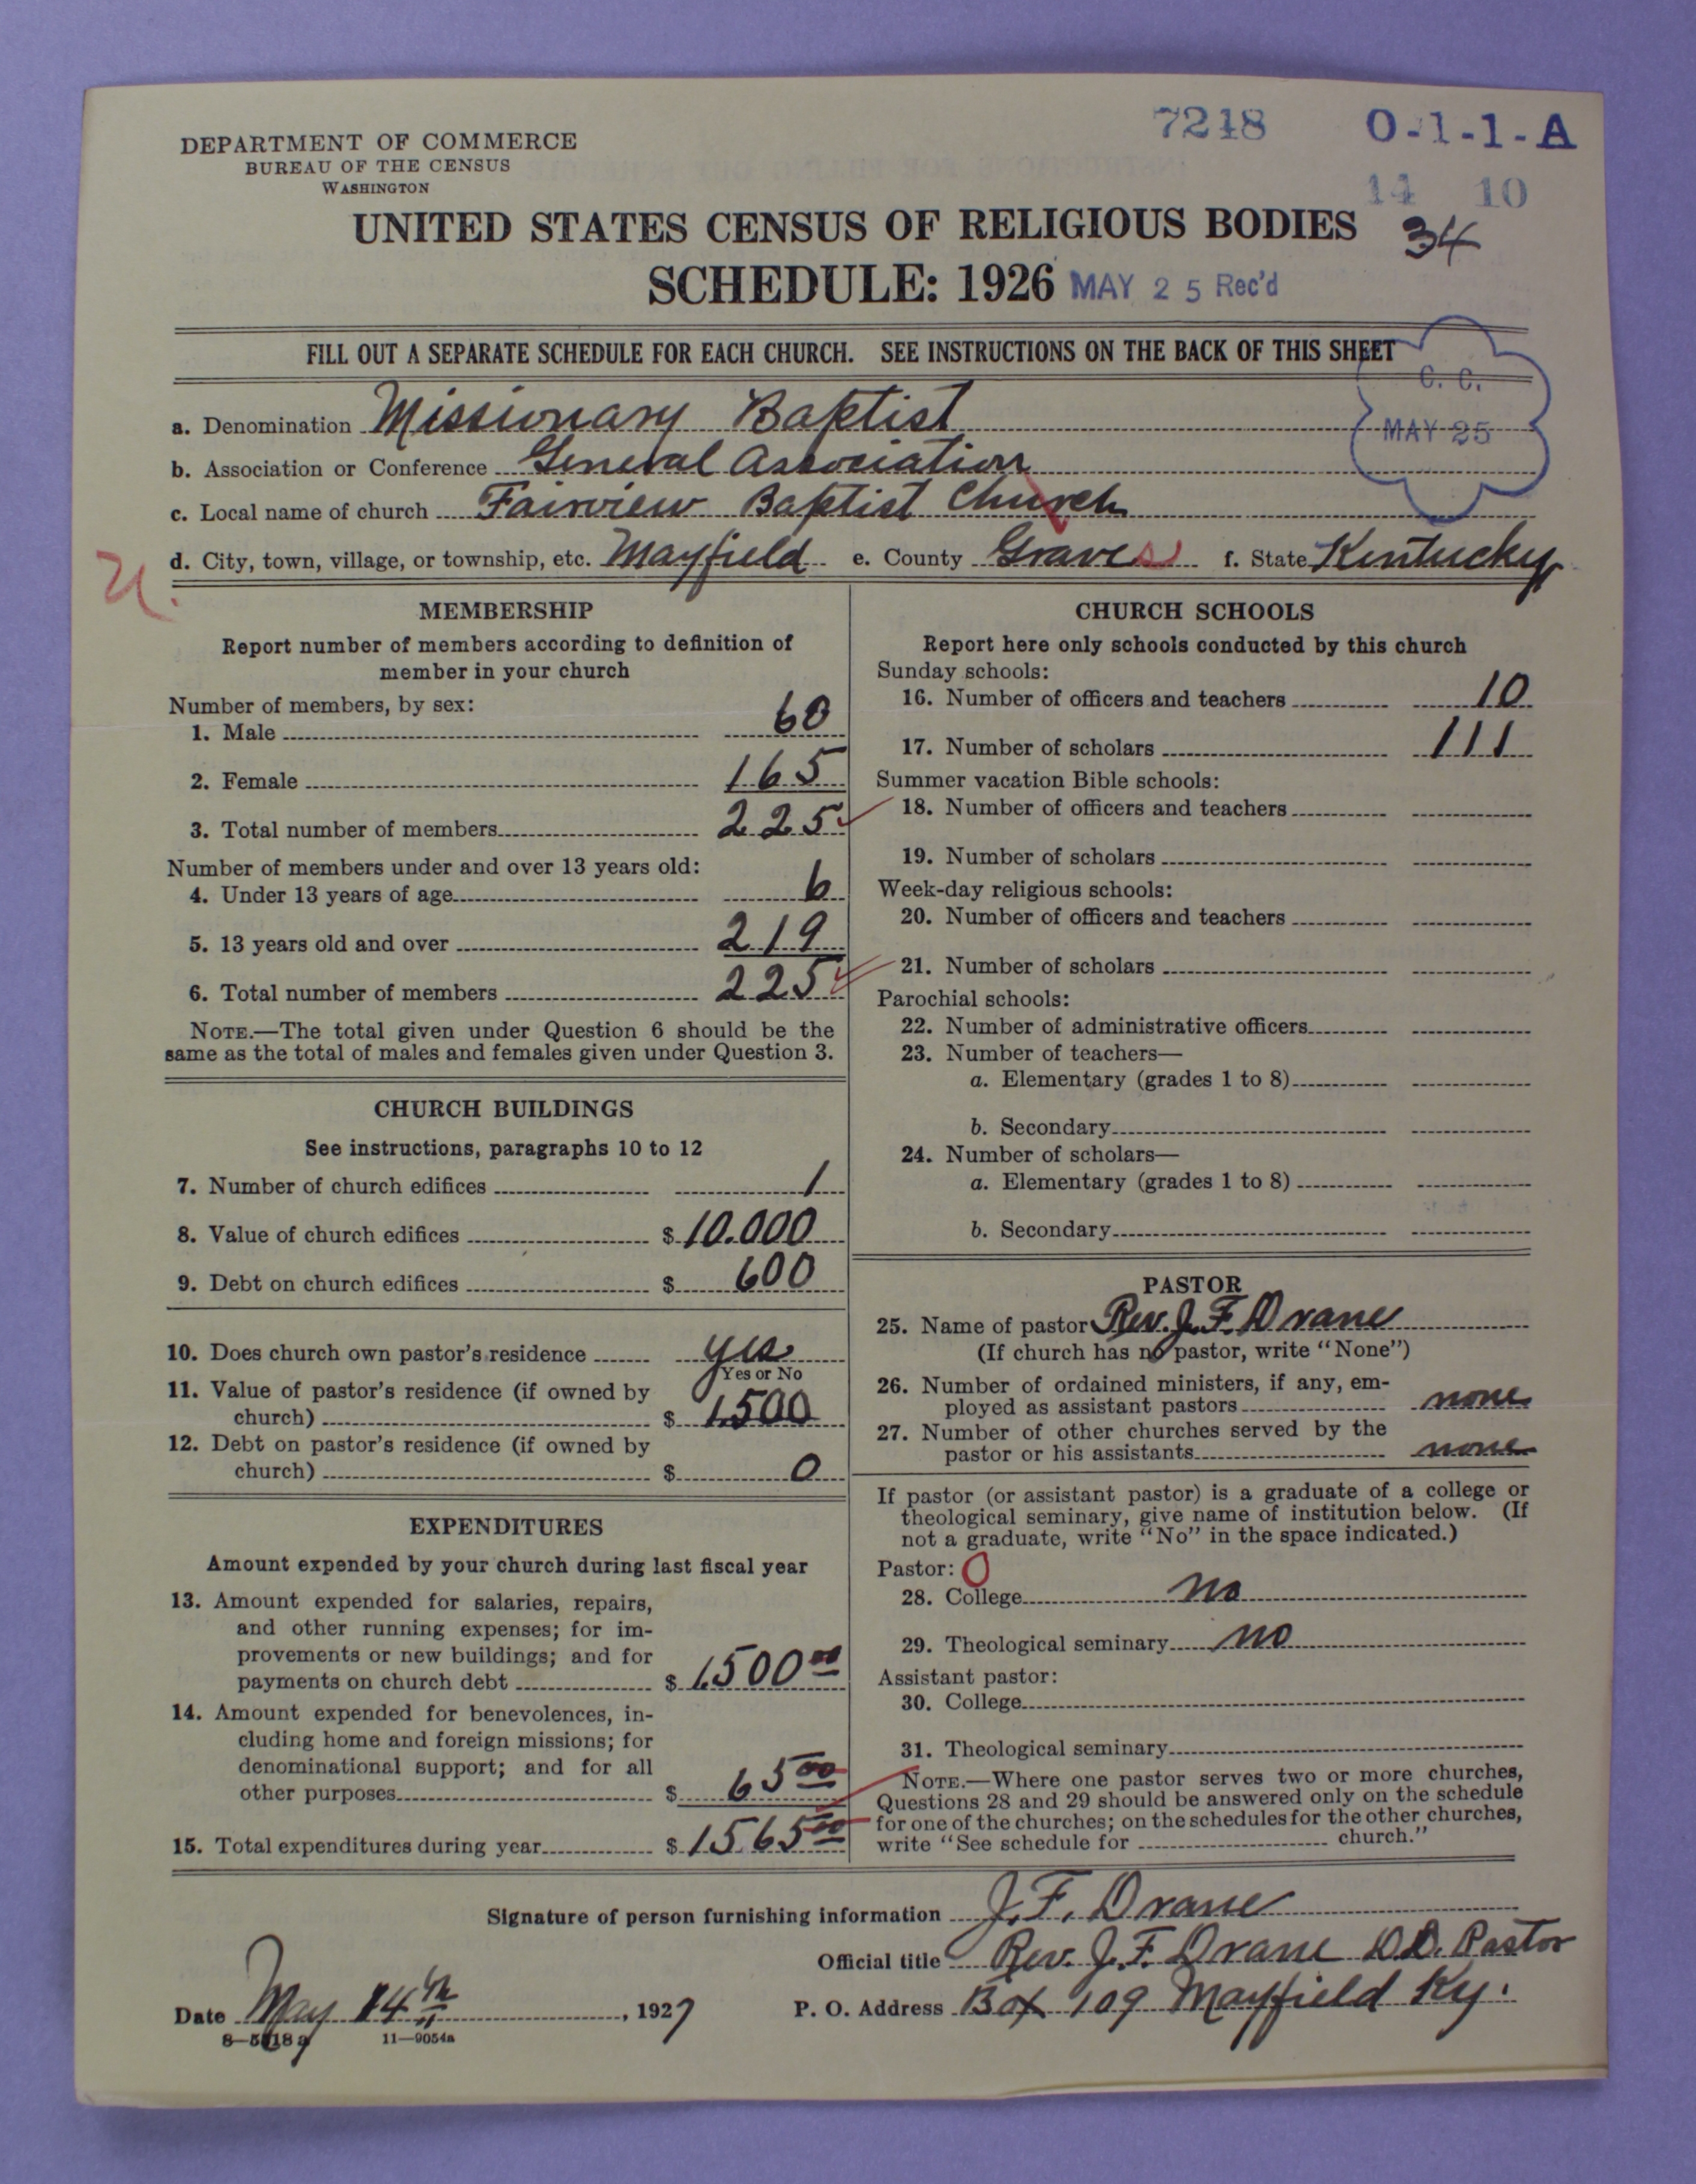 7218 O-1-1-A
DEPARTMENT OF COMMERCE
BUREAU OF THE CENSUS
WASHINGTON
14 10
UNITED STATES CENSUS OF RELIGIOUS BODIES
34
SCHEDULE: 1926 MAY 25 Rec'd
FILL OUT A SEPARATE SCHEDULE FOR EACH CHURCH. SEE INSTRUCTIONS ON THE BACK OF THIS SHEET
C. C.
MAY 25
a. Denomination Missionary Baptist
b. Association or Conference General Association
c. Local name of church Fairview Baptist Church
d. City, town, village, or township, etc. Mayfield e. County Graves f. State Kentucky
U.
MEMBERSHIP
Report number of members according to definition of
member in your church
Number of members, by sex:
1. Male 60
2. Female 165
3. Total number of members 225
Number of members under and over 13 years old:
4. Under 13 years of age 6
5. 13 years old and over 219
6. Total number of members 225
NOTE.—The total given under Question 6 should be the
same as the total of males and females given under Question 3.
CHURCH BUILDINGS
See instructions, paragraphs 10 to 12
7. Number of church edifices 1
8. Value of church edifices $ 10.000
9. Debt on church edifices $ 600
10. Does church own pastor's residence yes
Yes or No
11. Value of pastor's residence (if owned by
church) $ 1.500
12. Debt on pastor's residence (if owned by
church) $ 0
EXPENDITURES
Amount expended by your church during last fiscal year
13. Amount expended for salaries, repairs,
and other running expenses; for im-
provements or new buildings; and for
payments on church debt $ 1.500 00
14. Amount expended for benevolences, in-
cluding home and foreign missions; for
denominational support; and for all
other purposes $ 65 00
15. Total expenditures during year $ 1565 00
CHURCH SCHOOLS
Report here only schools conducted by this church
Sunday schools:
16. Number of officers and teachers 10
17. Number of scholars 111
Summer vacation Bible schools:
18. Number of officers and teachers
19. Number of scholars
Week-day religious schools:
20. Number of officers and teachers
21. Number of scholars
Parochial schools:
22. Number of administrative officers
23. Number of teachers—
a. Elementary (grades 1 to 8)
b. Secondary
24. Number of scholars—
a. Elementary (grades 1 to 8)
b. Secondary
PASTOR
25. Name of pastor Rev. J. F. Drane
(If church has no pastor, write "None")
26. Number of ordained ministers, if any, em-
ployed as assistant pastors none
27. Number of other churches served by the
pastor or his assistants none
If pastor (or assistant pastor) is a graduate of a college or
theological seminary, give name of institution below. (If
not a graduate, write "No" in the space indicated.)
Pastor: O
28. College no
29. Theological seminary no
Assistant pastor:
30. College
31. Theological seminary
NOTE.—Where one pastor serves two or more churches,
Questions 28 and 29 should be answered only on the schedule
for one of the churches; on the schedules for the other churches,
write "See schedule for church."
Signature of person furnishing information J. F. Drane
Official title Rev. J. F. Drane D.D. Pastor
Date May 14th, 1927 P. O. Address Box 109 Mayfield Ky.
11—9054a